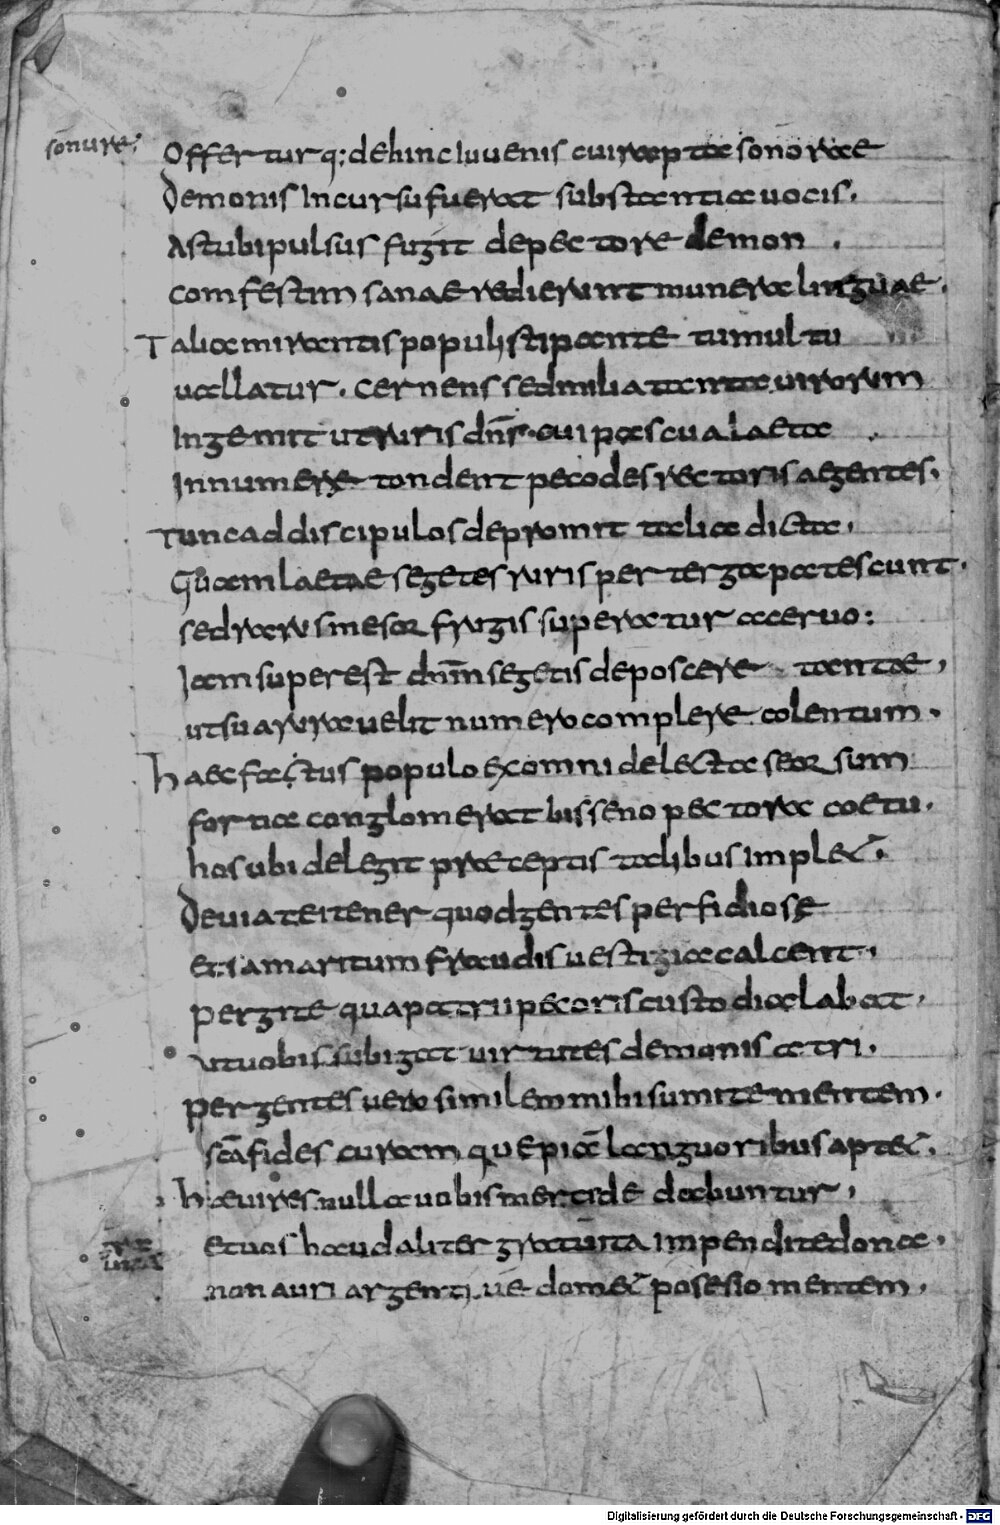 sonure:
Offertur q; dehinc Iuuenis cui rapta sonorae
Demonis Incursu fuerat substantia uocis.
Astubi pulsus fugit de pectore demon .
comfestim sanae redierunt munera linguae.
Talia mirantis populi stipante tumultu
uallatur. cernens sed milia tanta uirorum
Ingemit ut ruris dn̄s. cui pascua laeta .
Innumere tondent pecodes rectoris aegentes.
Tunc ad discipulos depromit talia dicta.
Quam laetae segetes ruris per terga patescunt.
sed rarus mesor frugis superatur aceruo:
Iam superest dn̄m segetis deposcere tanta,
ut sua rura uelit numero complere colentum.
haec factus populo ex omni delecta seorsum
fortia conglomerat bisseno pectora coetu.
hos ubi delegit praeceptis talibus implet.
Deuia te itener quod gentes perfidiosę
et iamaritum fraudis uestigia calcent.
pergite qua patrii pecoris custodia labat.
ut uobis subigat uirtutes demonis atri.
pergentes uero similem mihi sumite mentem.
sc̄a fides curam que piā languoribus aptet.
hae uires nulla uobis mercide dabuntur,
et uos haud aliter gratuita impendite dona.
non auri argenti ue domet posesio mentem.
Digitalisierung gefördert durch die Deutsche Forschungsgemeinschaft - DFG